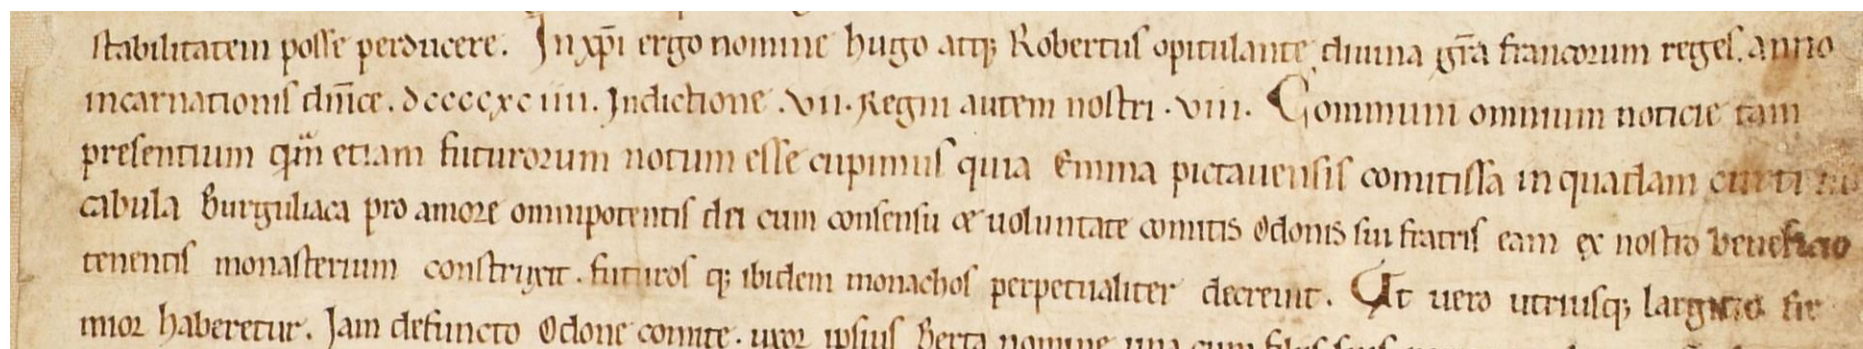 stabilitatem posse perducere. In xp̄i ergo nomine hugo atq; Robertus opitulante diuina gr̄a francorum reges. anno
incarnationis dn̄ice. dccccxciiii. Indictione. vii. Regni autem nostri. viii. Communi omnium noticie tam
presentium qm̄ etiam futurorum notum esse cupimus quia Emma pictauensis comitissa in quadam curti
cabula Burguliaca pro amore omnipotentis dei cum consensu & uoluntate comitis Odonis sui fratris eam ex nostro beneficio
tenentis monasterium construxit. futuros q; ibidem monachos perpetualiter decreuit. Ut uero utriusq; largitio fir
mior haberetur. Iam defuncto Odone comite. uxor ipsius Berta nomine una cum filiis suis